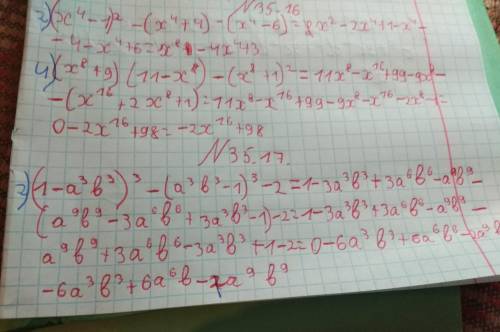 N35.16
3) (x⁴-1)² -(x⁴+4) -(x⁴-6)=8x²-2x⁴+1-x⁴-
-4-x⁴+6=x⁸ -4x⁴+3
4) (x⁸+9) (11-x⁸) -(x⁸+1)²=11x⁸-x¹⁶+99-9x⁸-
-(x¹⁶+2x⁸+1)=11x⁸-x¹⁶+99-9x⁸-x¹⁶-2x⁸-1=
0-2x¹⁶+98=-2x¹⁶+98
N35.17.
2) (1-a³b³)³-(a³b³-1)³-2=1-3a³b³+3a⁶b⁶-a⁹b⁹-
(a⁹b⁹-3a⁶b⁶+3a³b³-1)-2=1-3a³b³+3a⁶b⁶-a⁹b⁹-
a⁹b⁹+3a⁶b⁶-3a³b³+1-2=0-6a³b³+6a⁶b⁶-2a⁹b⁹
-6a³b³+6a⁶b-2a⁹b⁹